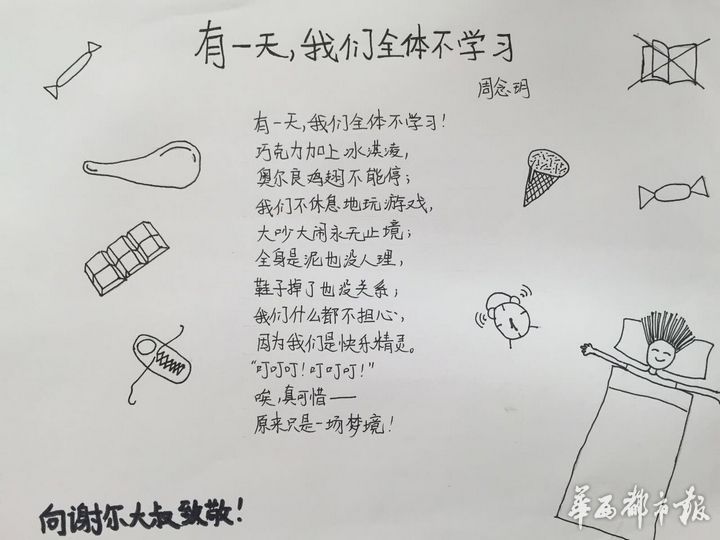 有一天，我们全体不学习
周念玥
有一天，我们全体不学习！
巧克力加上冰淇凌，
奥尔良鸡翅不能停；
我们不休息地玩游戏，
大吵大闹永无止境；
全身是泥也没人理，
鞋子掉了也没关系；
我们什么都不担心，
因为我们是快乐精灵。
“叮叮叮！叮叮叮！”
唉，真可惜——
原来只是一场梦境！
向谢尔大叔致敬！
华西都市报